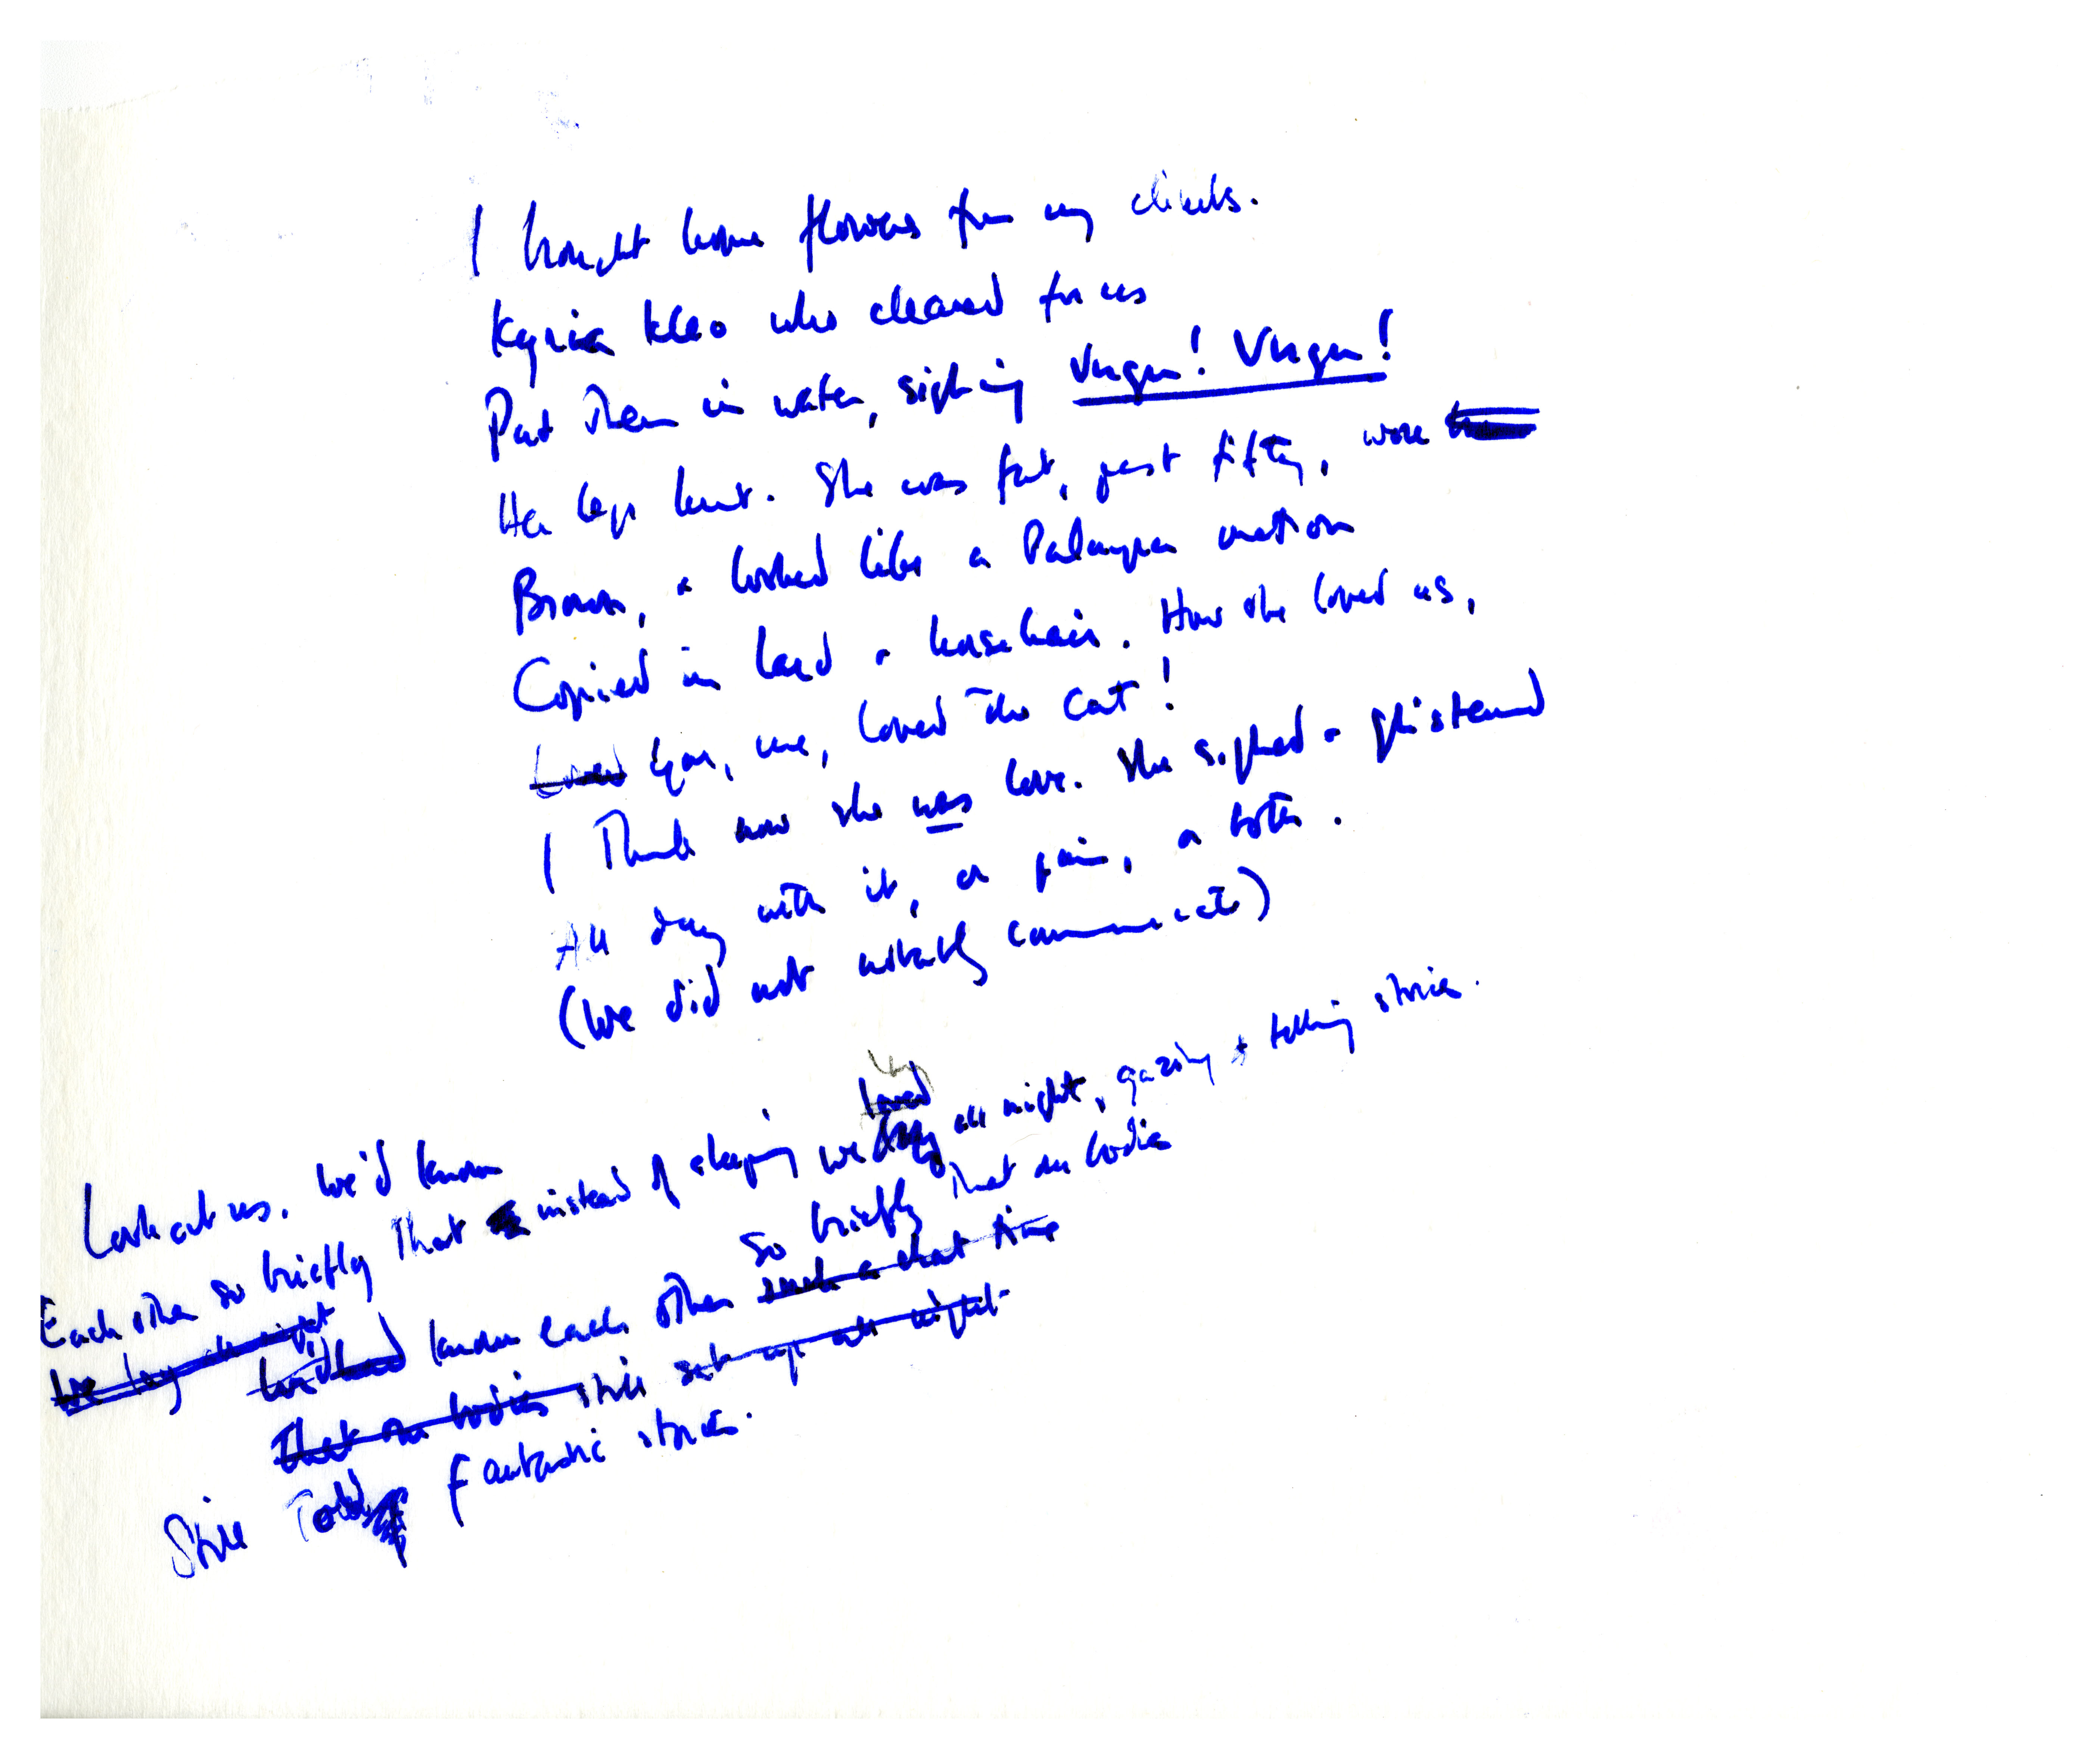 I brought home flowers from my climbs.
Kyria Kleo who cleaned for us
Put them in water, sighing Virgin! Virgin!
Her legs hurt. She was fat, past fifty, wore
Brown, + looked like a Palmyra matron
Copied in lard + horsehair. How she loved us,
Loved You, me, loved the cat!
I think now she was love. She sighed + glistened
All day with it, or pain, or both.
(We did not notably communicate)
Look at us. We'd known
Each other so briefly that instead of sleeping we lay all night, gazing + telling stories.
We lay all night
We'd had known each other so briefly that our bodies
such a short time
That our bodies still sat up all night
Still Told fantastic stories.